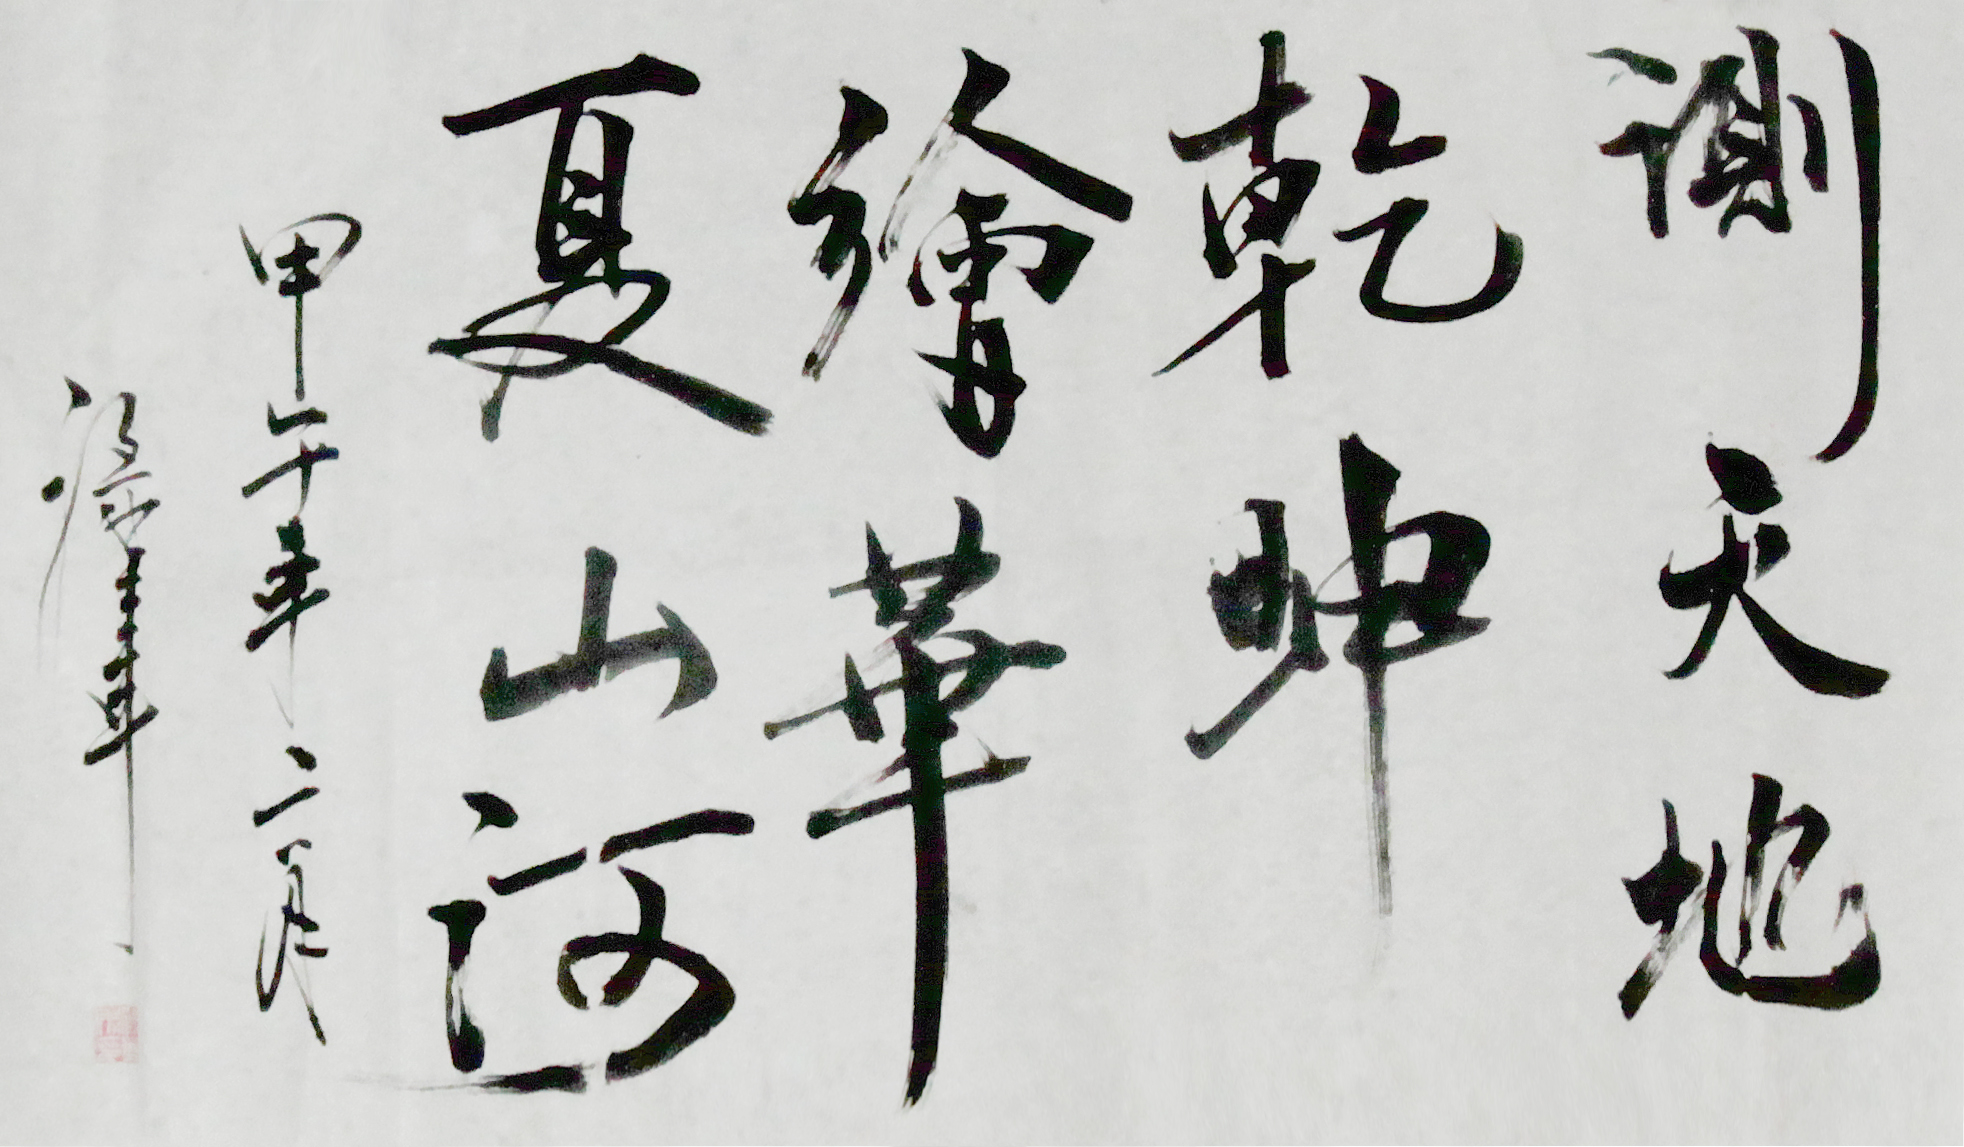 測天地
乾坤
繪華
夏山河
甲午年二月